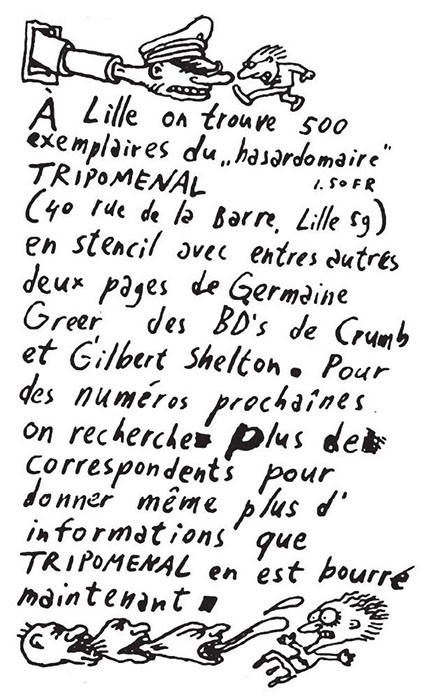 À Lille on trouve 500
exemplaires du „hasardomaire"
TRIPOMENAL 1.50 FR
(40 rue de la Barre, Lille 59)
en stencil avec entres autres
deux pages de Germaine
Greer des BD's de Crumb
et Gilbert Shelton. Pour
des numéros prochaînes
on recherche plus de
correspondents pour
donner même plus d'
informations que
TRIPOMENAL en est bourré
maintenant.